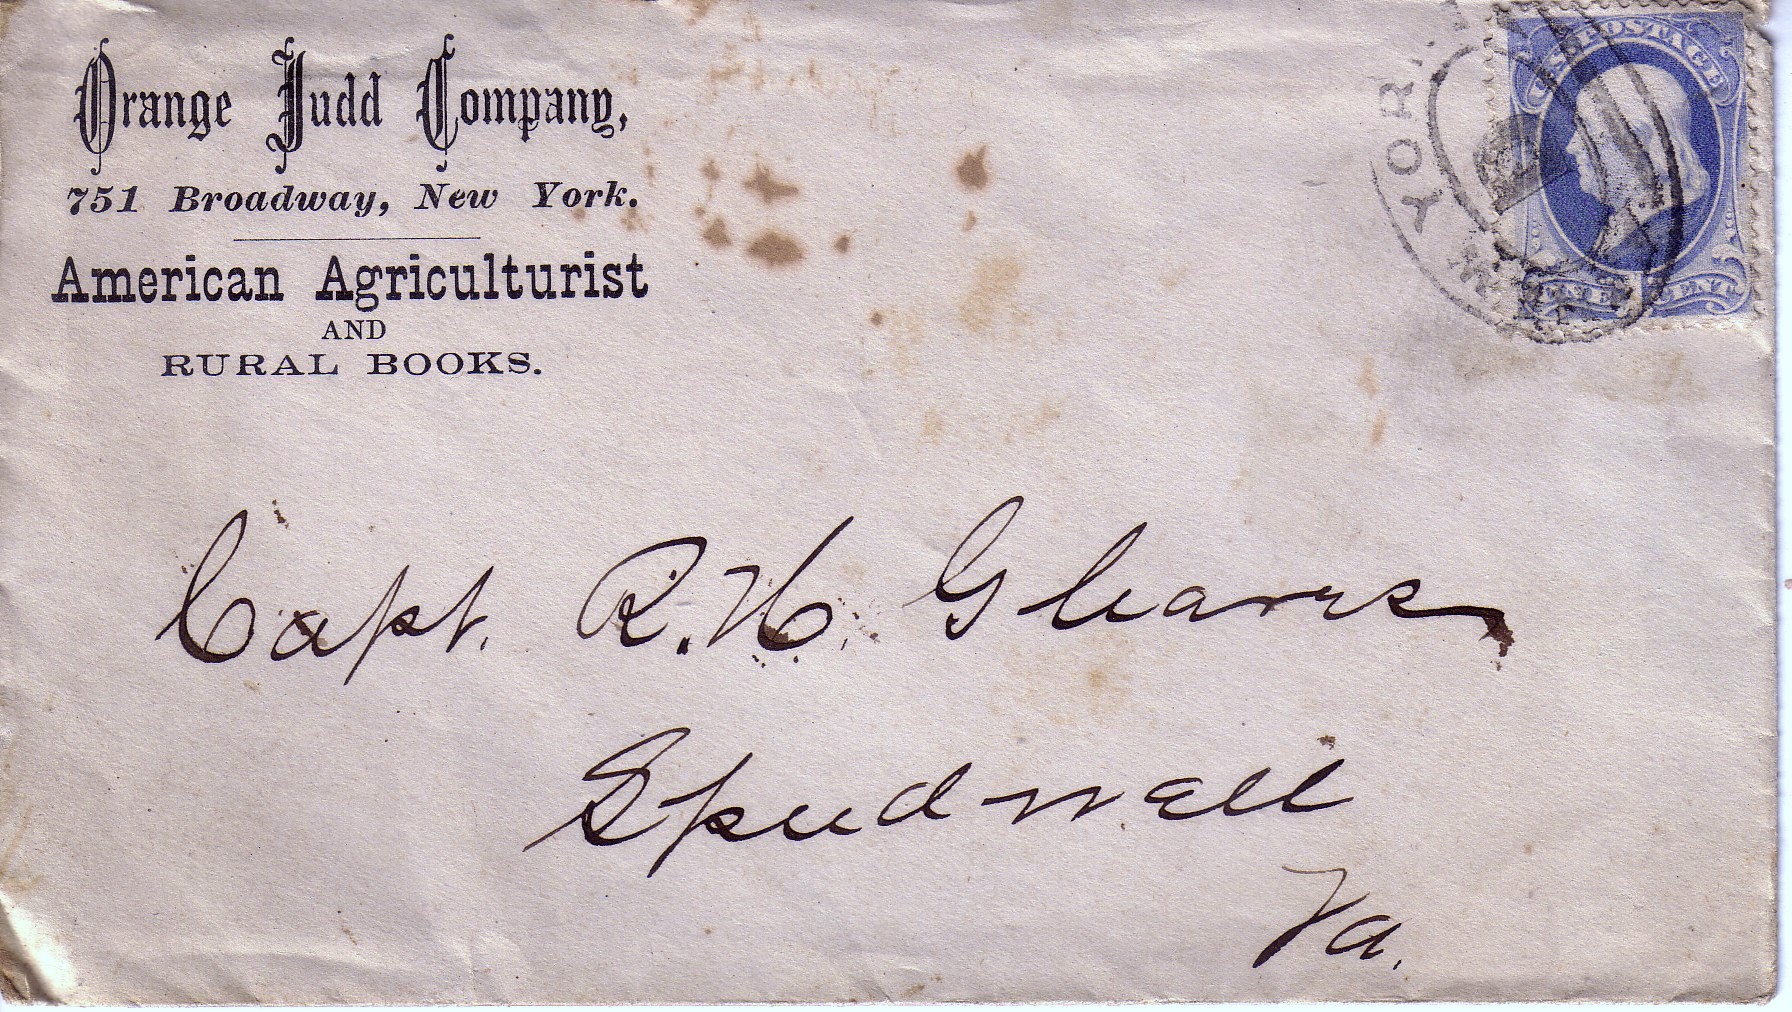 Orange Judd Company,
751 Broadway, New York.
American Agriculturist
AND
RURAL BOOKS.
U.S. POSTAGE
ONE CENT
YORK
Capt. R. H. Gleaves
Spudwell
Va.